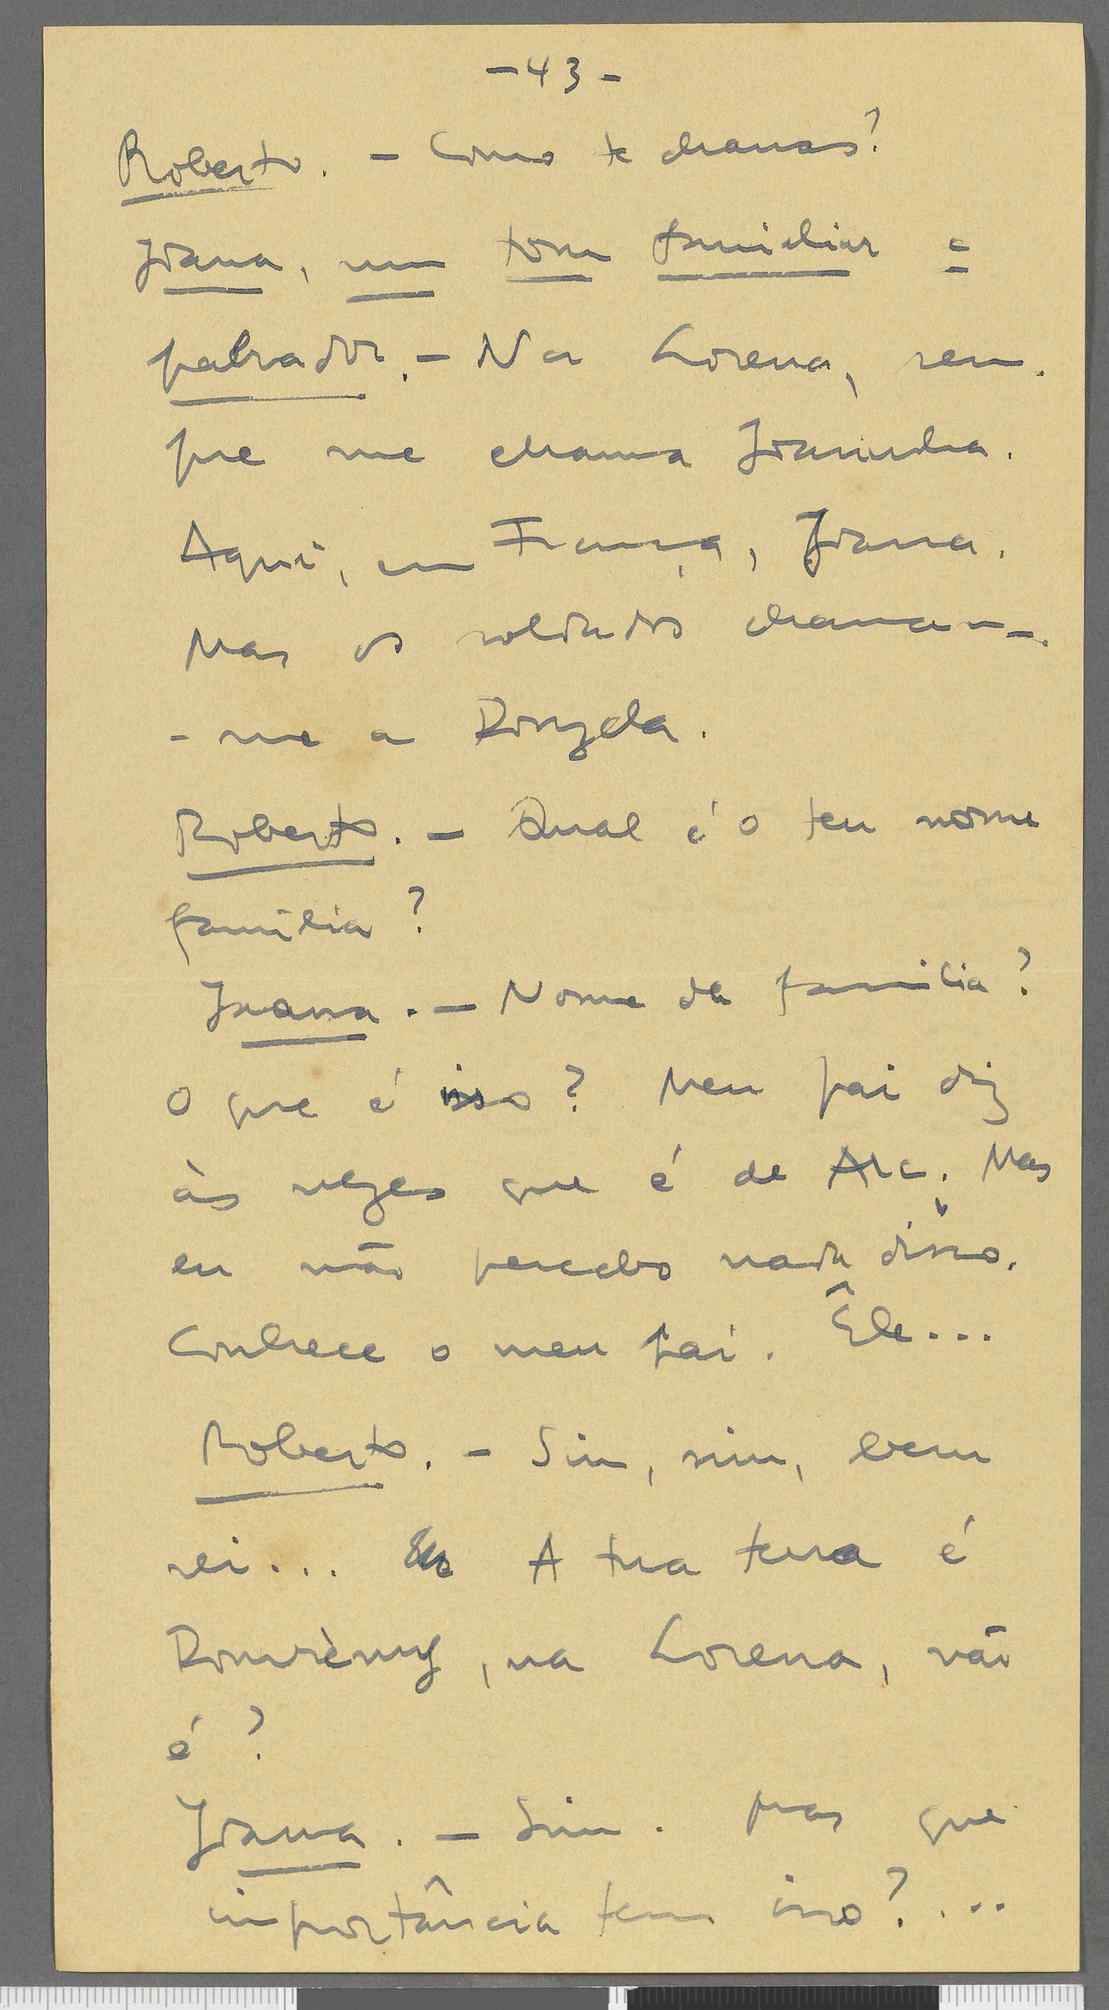 - 43 -
Roberto. - Como te chamas?
Joana, num tom familiar e
palrador. - Na Lorena, sem-
pre me chama Joaninha.
Aqui, em França, Joana.
Mas os soldados chamam-
- me a Donzela.
Roberto. - Qual é o teu nome
família?
Joana. - Nome de família?
O que é isso? Meu pai diz
às vezes que é de Arc. Mas
eu não percebo nada disso.
Conhece o meu pai. Êle...
Roberto. - Sim, sim, bem
sei... A tua terra é
Domrèmy, na Lorena, não
é?
Joana. - Sim. Mas que
importância tem isso?...